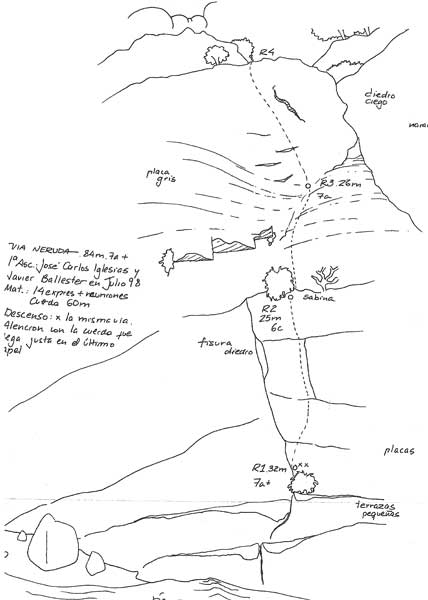 R4
diedro
ciego
placa
gris
R3.26m
7a
VIA NERUDA 84m. 7a+
1ª Asc. José Carlos Iglesias y
Javier Ballester en Julio 98
Mat.: 14 expres + reuniones
Cuerda 60m
Descenso: x la misma via.
Atencion con la cuerda que
ega justa en el último
apel
sabina
R2
25m
6c
fisura
diedro
placas
R1.32m xx
7a+
terrazas
pequeñas